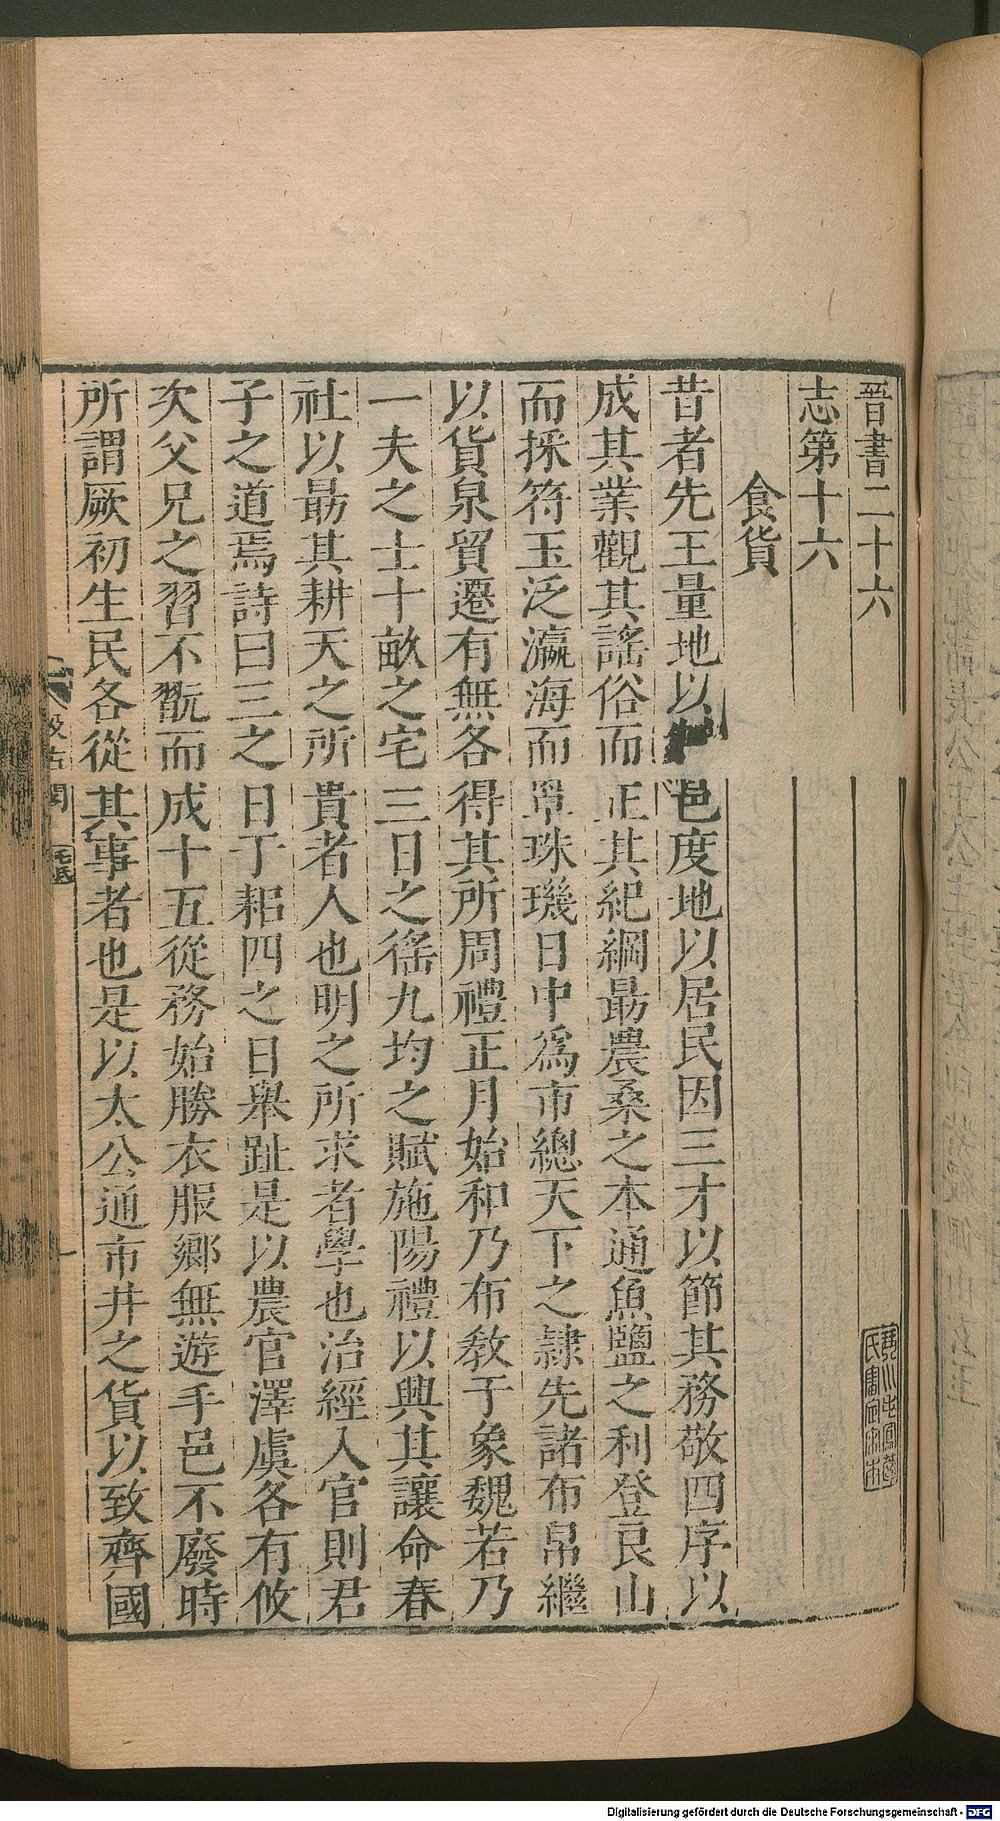 晉書二十六
志第十六
食貨
昔者先王量地以邑度地以居民因三才以節其務敬四序以
成其業觀其謠俗而正其紀綱勗農桑之本通魚鹽之利登良山
而採符玉泛瀛海而罩珠璣日中爲市總天下之隸先諸布帛繼
以貨泉貿遷有無各得其所周禮正月始和乃布教于象魏若乃
一夫之士十畝之宅三日之徭九均之賦施陽禮以興其讓命春
社以勗其耕天之所貴者人也明之所求者學也治經入官則君
子之道焉詩曰三之日于耜四之日舉趾是以農官澤虞各有攸
次父兄之習不翫而成十五從務始勝衣服鄉無遊手邑不廢時
所謂厥初生民各從其事者也是以太公通市井之貨以致齊國
汲古閣
毛氏
Digitalisierung gefördert durch die Deutsche Forschungsgemeinschaft - DFG